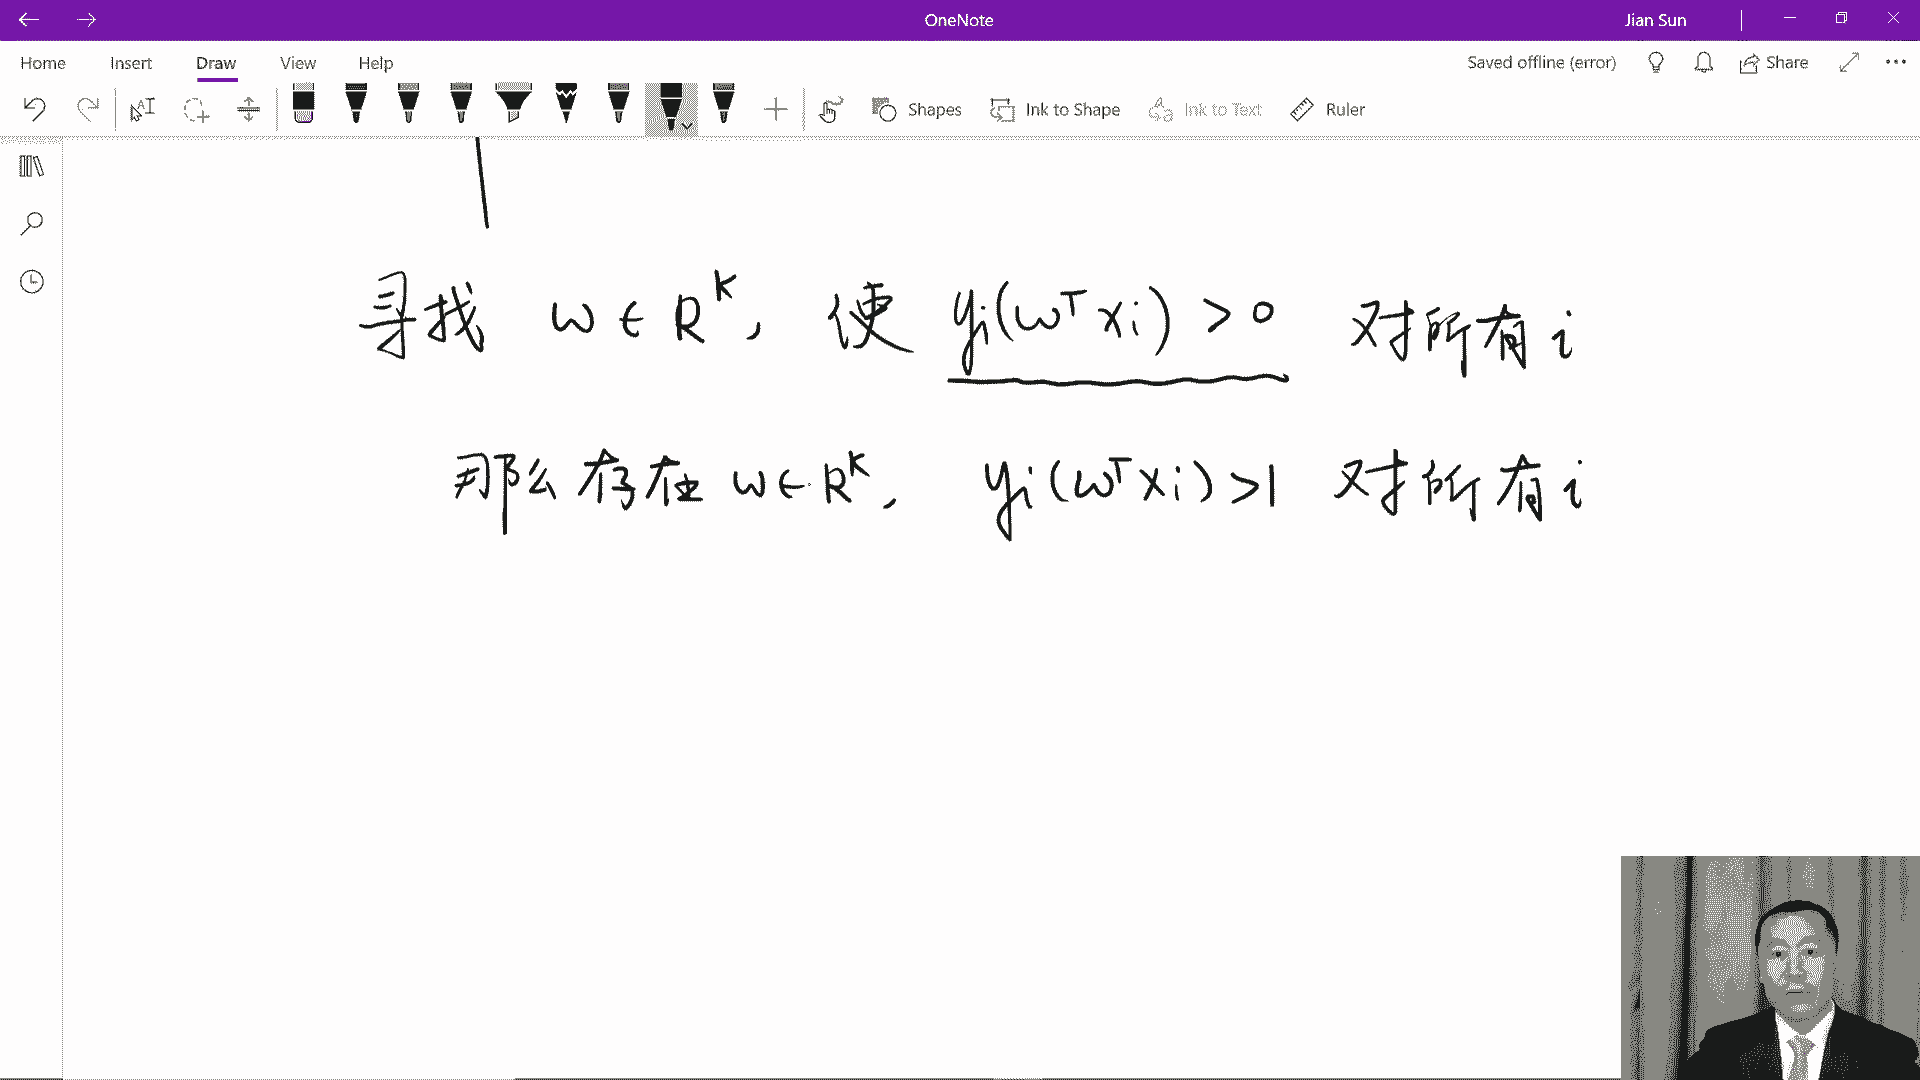 OneNote
Jian Sun
Home Insert Draw View Help
Saved offline (error)
Share
Shapes
Ink to Shape
Ink to Text
Ruler
寻找 w ∈ R^K, 使 yi(w^T xi) > 0 对所有 i
那么存在 w ∈ R^K, yi(w^T xi) > 1 对所有 i